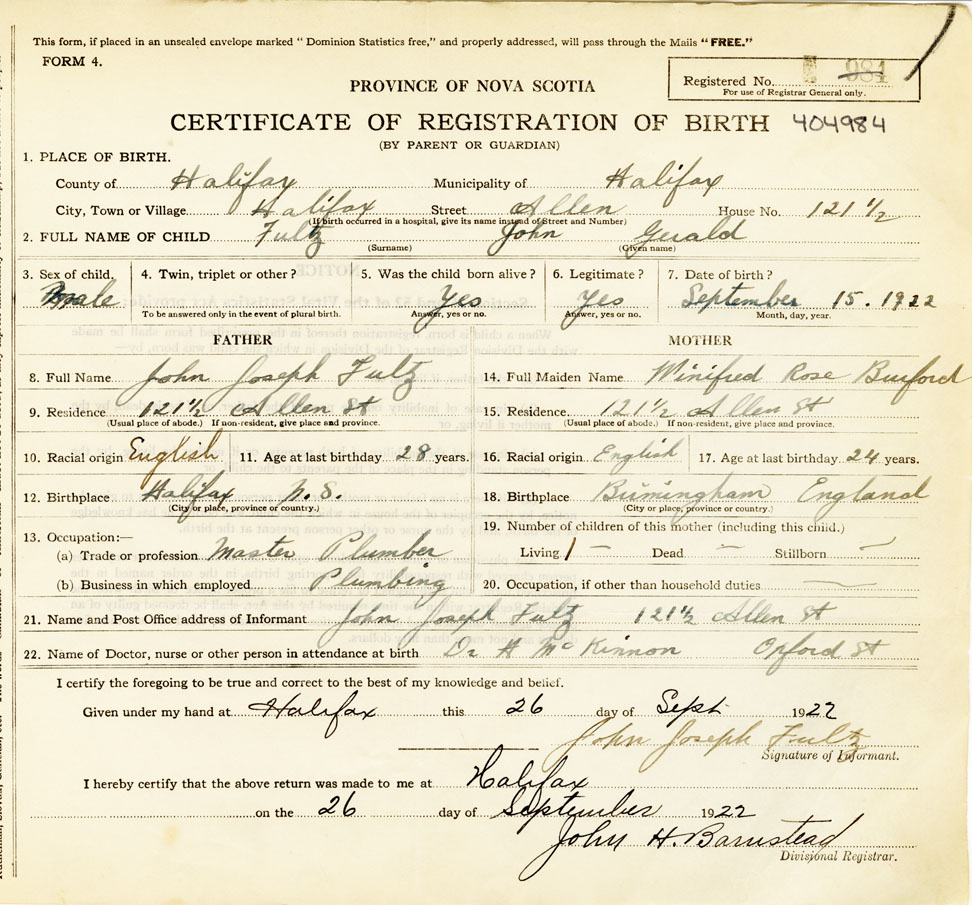 This form, if placed in an unsealed envelope marked “ Dominion Statistics free,” and properly addressed, will pass through the Mails “ FREE.”
FORM 4.
Registered No. 984
For use of Registrar General only.
PROVINCE OF NOVA SCOTIA
CERTIFICATE OF REGISTRATION OF BIRTH 404984
(BY PARENT OR GUARDIAN)
1. PLACE OF BIRTH.
County of Halifax Municipality of Halifax
City, Town or Village Halifax Street Allen House No. 121 1/2
(If birth occurred in a hospital, give its name instead of Street and Number)
2. FULL NAME OF CHILD Fultz John Gerald
(Surname) (Given name)
3. Sex of child. 4. Twin, triplet or other ? 5. Was the child born alive ? 6. Legitimate ? 7. Date of birth ?
Male Yes Yes September 15. 1922
To be answered only in the event of plural birth. Answer, yes or no. Answer, yes or no. Month, day, year.
FATHER MOTHER
8. Full Name John Joseph Fultz 14. Full Maiden Name Winifred Rose Burford
9. Residence 121 1/2 Allen St 15. Residence 121 1/2 Allen St
(Usual place of abode.) If non-resident, give place and province. (Usual place of abode.) If non-resident, give place and province.
10. Racial origin English 11. Age at last birthday 28 years. 16. Racial origin English 17. Age at last birthday 24 years.
12. Birthplace Halifax N.S. 18. Birthplace Birmingham England
(City or place, province or country.) (City or place, province or country.)
13. Occupation:— 19. Number of children of this mother (including this child.)
(a) Trade or profession Master Plumber Living 1 — Dead — Stillborn —
(b) Business in which employed Plumbing 20. Occupation, if other than household duties —
21. Name and Post Office address of Informant John Joseph Fultz 121 1/2 Allen St
22. Name of Doctor, nurse or other person in attendance at birth Dr H McKinnon Oxford St
I certify the foregoing to be true and correct to the best of my knowledge and belief.
Given under my hand at Halifax this 26 day of Sept 1922
John Joseph Fultz
Signature of Informant.
I hereby certify that the above return was made to me at Halifax
on the 26 day of September 1922
John H. Barnstead
Divisional Registrar.